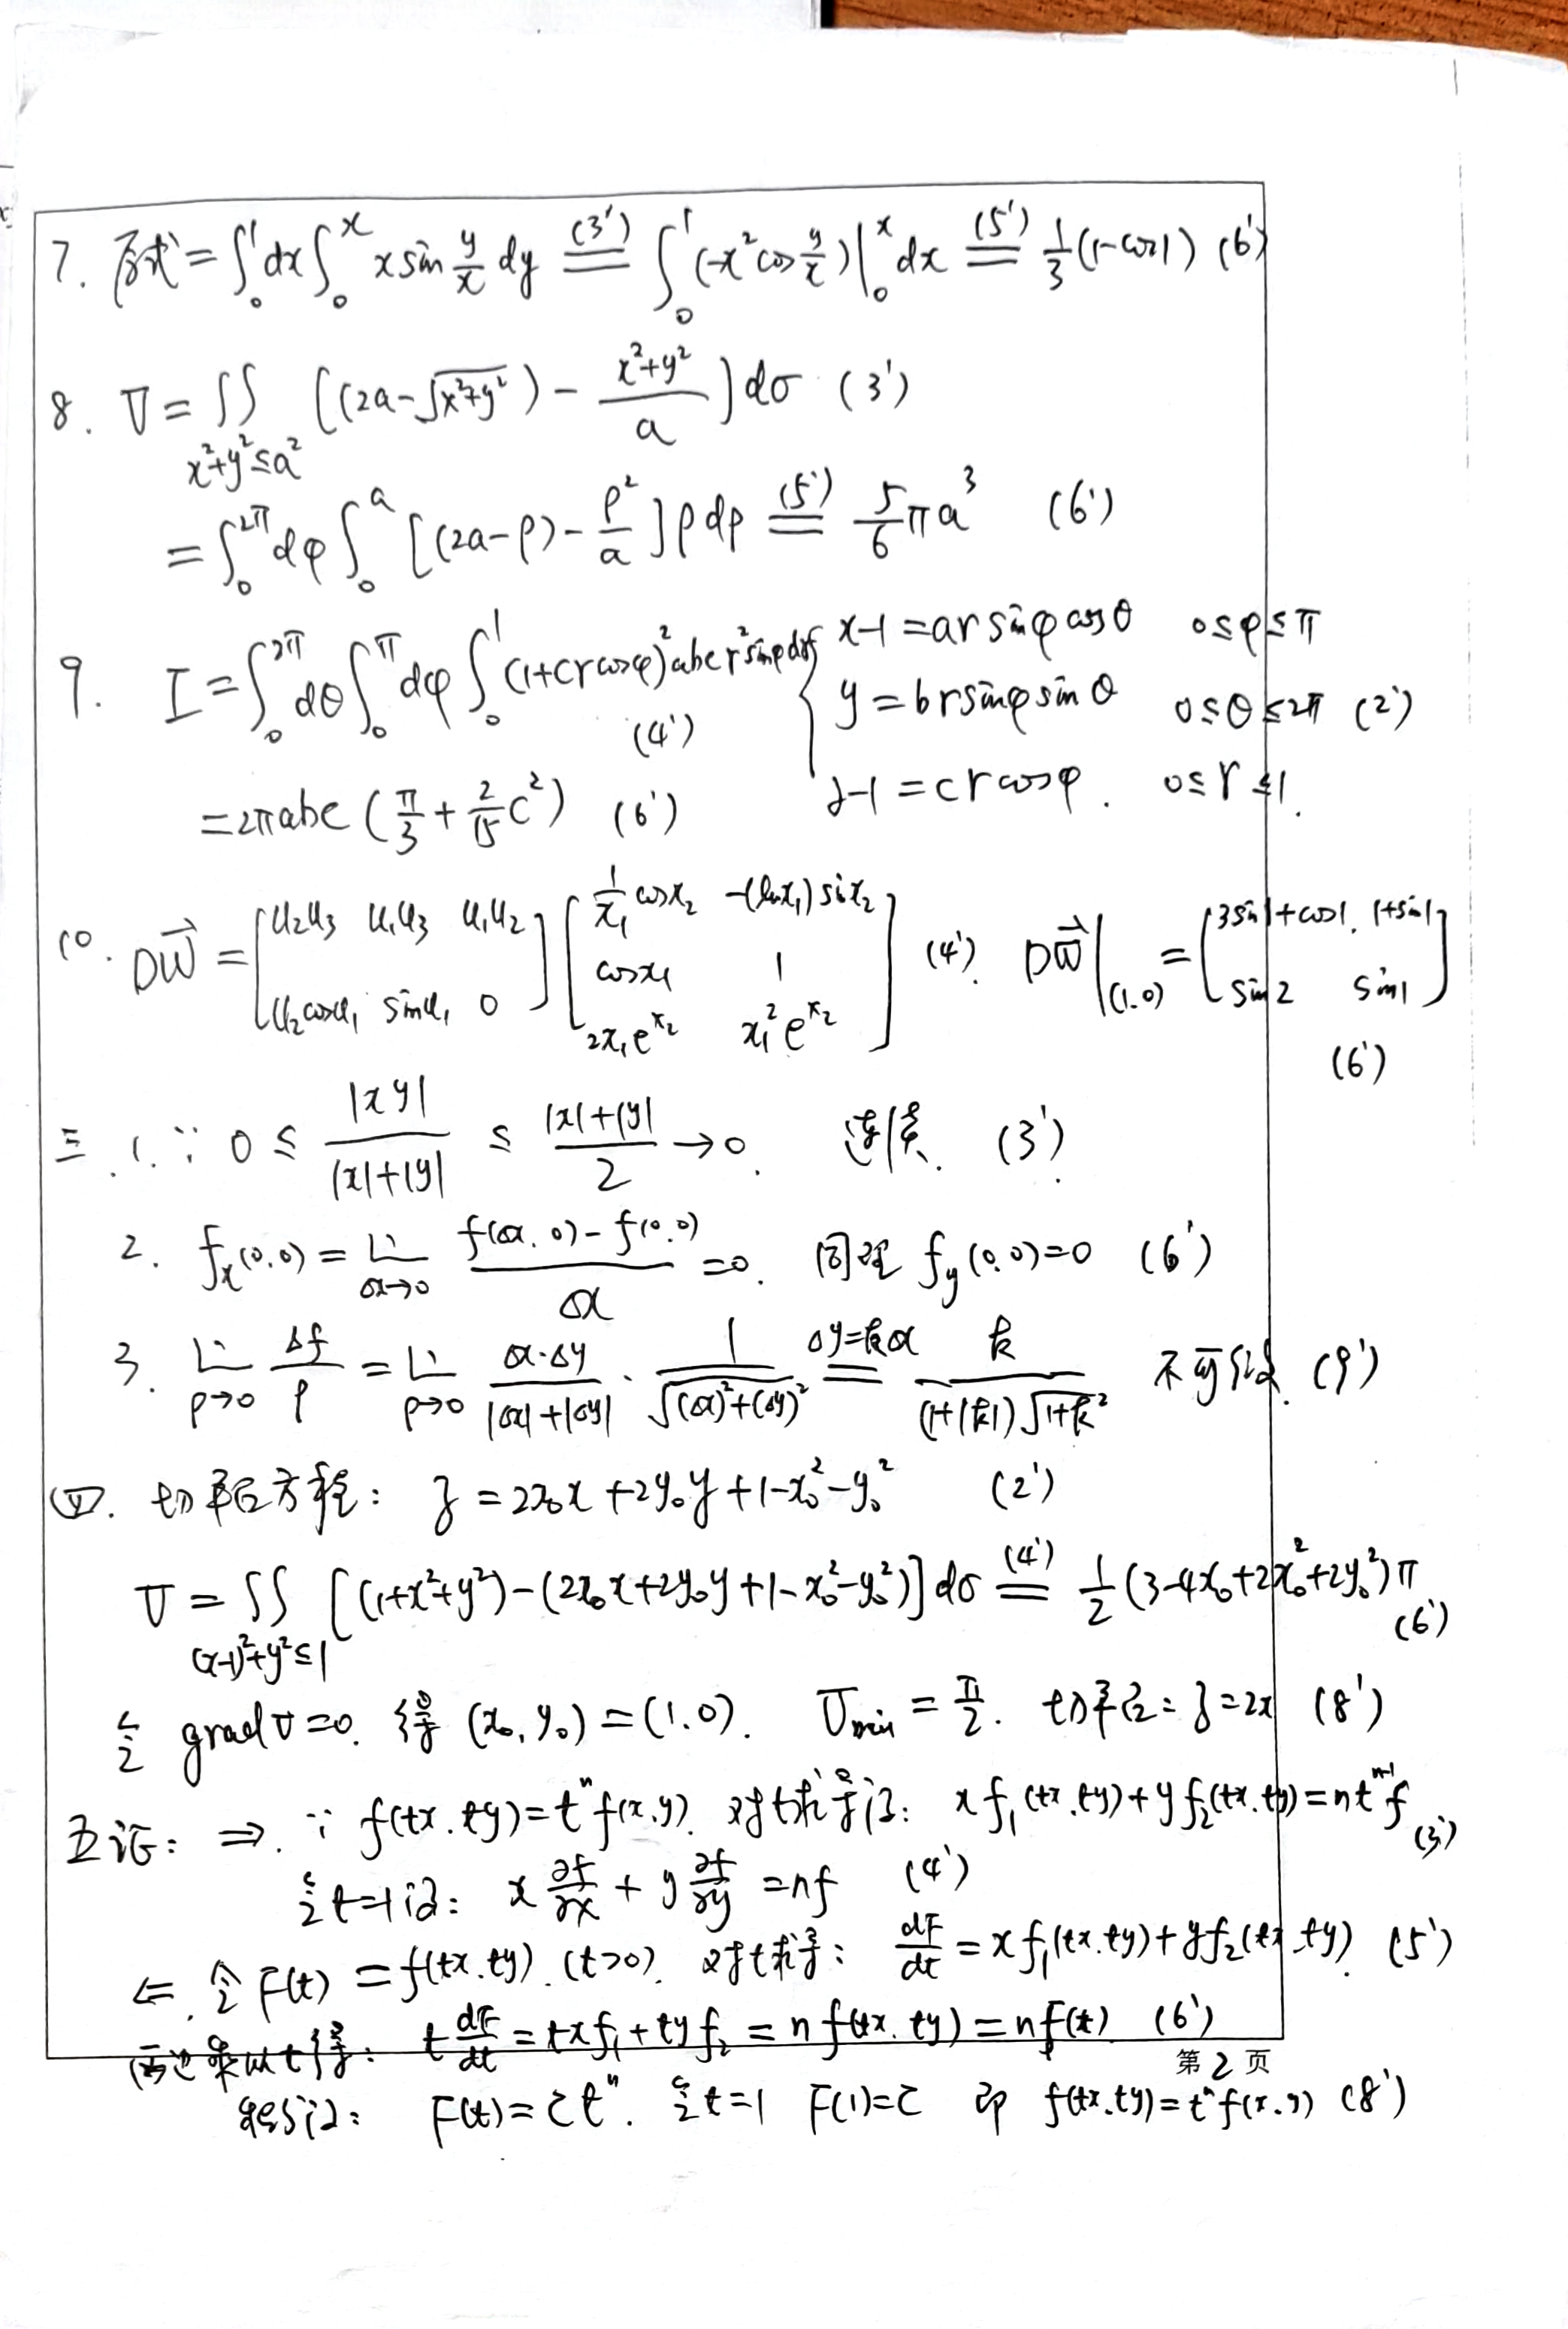 7. 原式 = ∫₀¹dx∫₀ˣ x sin y/x dy (3') == ∫₀¹(-x²cos y/x)|₀ˣ dx (5') == 1/3(1-cos1) (6')
8. V = ∬_{x²+y²≤a²} [(2a-√(x²+y²)) - (x²+y²)/a] dσ (3')
= ∫₀^{2π}dφ∫₀ᵃ [(2a-ρ) - ρ²/a]ρdρ (5') == 5/6 πa³ (6')
9. I = ∫₀^{2π}dθ∫₀^π dφ∫₀¹(1+cr cosφ)²abc r² sinφ dr (4') { x-1 = ar sinφ cosθ 0≤φ≤π
y = br sinφ sinθ 0≤θ≤2π (2')
z-1 = cr cosφ. 0≤r≤1.
= 2πabc (π/3 + 2/15 c²) (6')
10. Dw⃗ = [u₂u₃ u₁u₃ u₁u₂; u₂cosu₁ sinu₁ 0] [1/x₁ cosx₂ -(lnx₁)sinx₂; cosx₁ 1; 2x₁e^{x₂} x₁²e^{x₂}] (4'). Dw⃗|(1.0) = [3sin1+cos1. 1+sin1; sin2 sin1]
(6')
三.1. ∵ 0 ≤ |xy|/(|x|+|y|) ≤ (|x|+|y|)/2 → 0. 连续. (3')
2. fₓ(0,0) = Lim_{Δx→0} (f(Δx,0)-f(0,0))/Δx = 0. 同理 f_y(0,0)=0 (6')
3. Lim_{ρ→0} Δf/ρ = Lim_{ρ→0} Δx·Δy/(|Δx|+|Δy|) · 1/√((Δx)²+(Δy)²) Δy=kΔx == k/((1+|k|)√(1+k²)) 不可微. (9')
四. 切平面方程: z = 2x₀x+2y₀y+1-x₀²-y₀² (2')
V = ∬_{(x-1)²+y²≤1} [(1+x²+y²)-(2x₀x+2y₀y+1-x₀²-y₀²)]dσ (4') == 1/2(3-4x₀+2x₀²+2y₀²)π (6')
令 grad V=0. 得 (x₀,y₀)=(1.0). V_min = π/2. 切平面: z=2x (8')
五证: ⇒. ∵ f(tx.ty)=tⁿf(x.y). 对t求导得: xf₁(tx.ty)+yf₂(tx.ty)=nt^{n-1}f (3')
令t=1得: x ∂f/∂x + y ∂f/∂y = nf (4')
⇐. 令F(t)=f(tx.ty).(t>0). 对t求导: dF/dt = xf₁(tx.ty)+yf₂(tx.ty). (5')
两边乘以t得: t dF/dt = txf₁+tyf₂ = nf(tx.ty) = nF(t) (6')
第2页
解得: F(t)=Ctⁿ. 令t=1 F(1)=C 即 f(tx.ty)=tⁿf(x.y) (8')